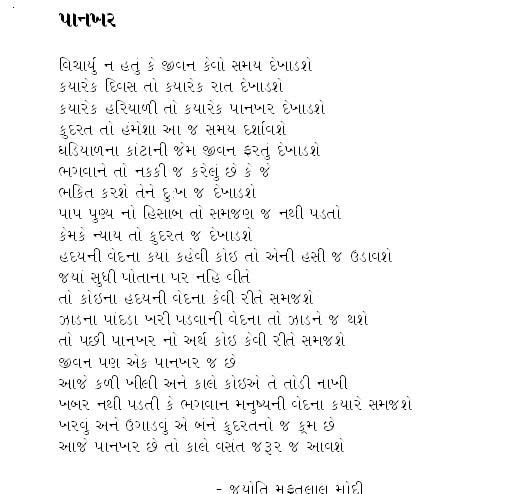 પાનખર
વિચાર્યુ ન હતું કે જીવન કેવો સમય દેખાડશે
કયારેક દિવસ તો કયારેક રાત દેખાડશે
કયારેક હરિયાળી તો કયારેક પાનખર દેખાડશે
કુદરત તો હંમેશા આ જ સમય દર્શાવશે
ઘડિયાળના કાંટાની જેમ જીવન ફરતું દેખાડશે
ભગવાને તો નકકી જ કરેલું છે કે જે
ભકિત કરશે તેને દુ:ખ જ દેખાડશે
પાપ પુણ્ય નો હિસાબ તો સમજણ જ નથી પડતો
કેમકે ન્યાય તો કુદરત જ દેખાડશે
હદયની વેદના કયાં કહેવી કોઇ તો એની હસી જ ઉડાવશે
જયાં સુધી પોતાના પર નહિ વીતે
તો કોઇના હદયની વેદના કેવી રીતે સમજશે
ઝાડના પાંદડા ખરી પડવાની વેદના તો ઝાડને જ થશે
તો પછી પાનખર નો અર્થ કોઇ કેવી રીતે સમજશે
જીવન પણ એક પાનખર જ છે
આજે કળી ખીલી અને કાલે કોઇએ તે તોડી નાખી
ખબર નથી પડતી કે ભગવાન મનુષ્યની વેદના કયારે સમજશે
ખરવું અને ઉગાડવું એ બંને કુદરતનો જ ક્રમ છે
આજે પાનખર છે તો કાલે વસંત જરૂર જ આવશે
- જયોતિ મફતલાલ મોદી